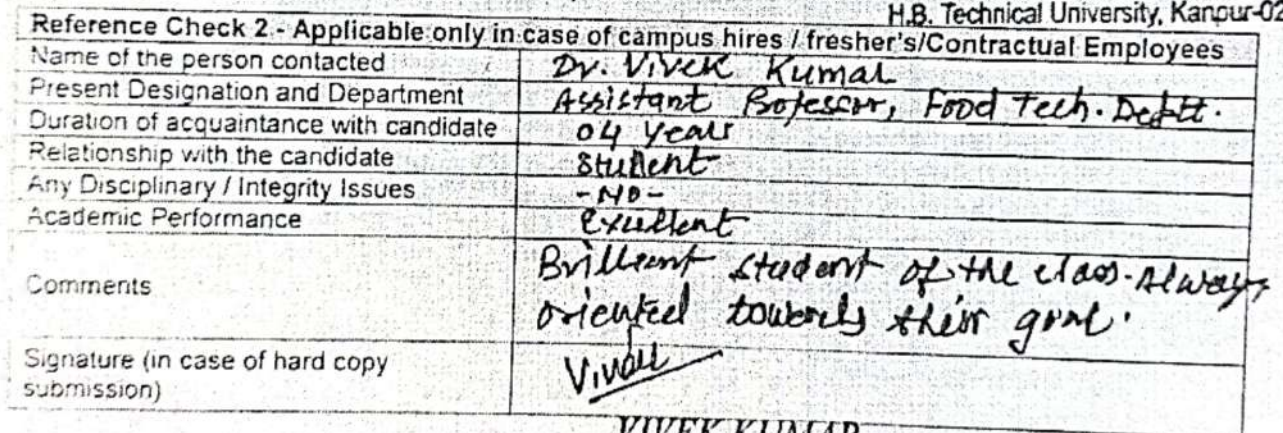 H.B. Technical University, Kanpur-02
Reference Check 2 - Applicable only in case of campus hires / fresher's/Contractual Employees
Name of the person contacted Dr. Vivek Kumar
Present Designation and Department Assistant Professor, Food Tech. Deptt.
Duration of acquaintance with candidate 04 years
Relationship with the candidate Student
Any Disciplinary / Integrity Issues - NO -
Academic Performance Excellent
Comments Brilliant student of the class. Always
oriented towards their goal.
Signature (in case of hard copy Vivek
submission)
VIVEK KUMAR